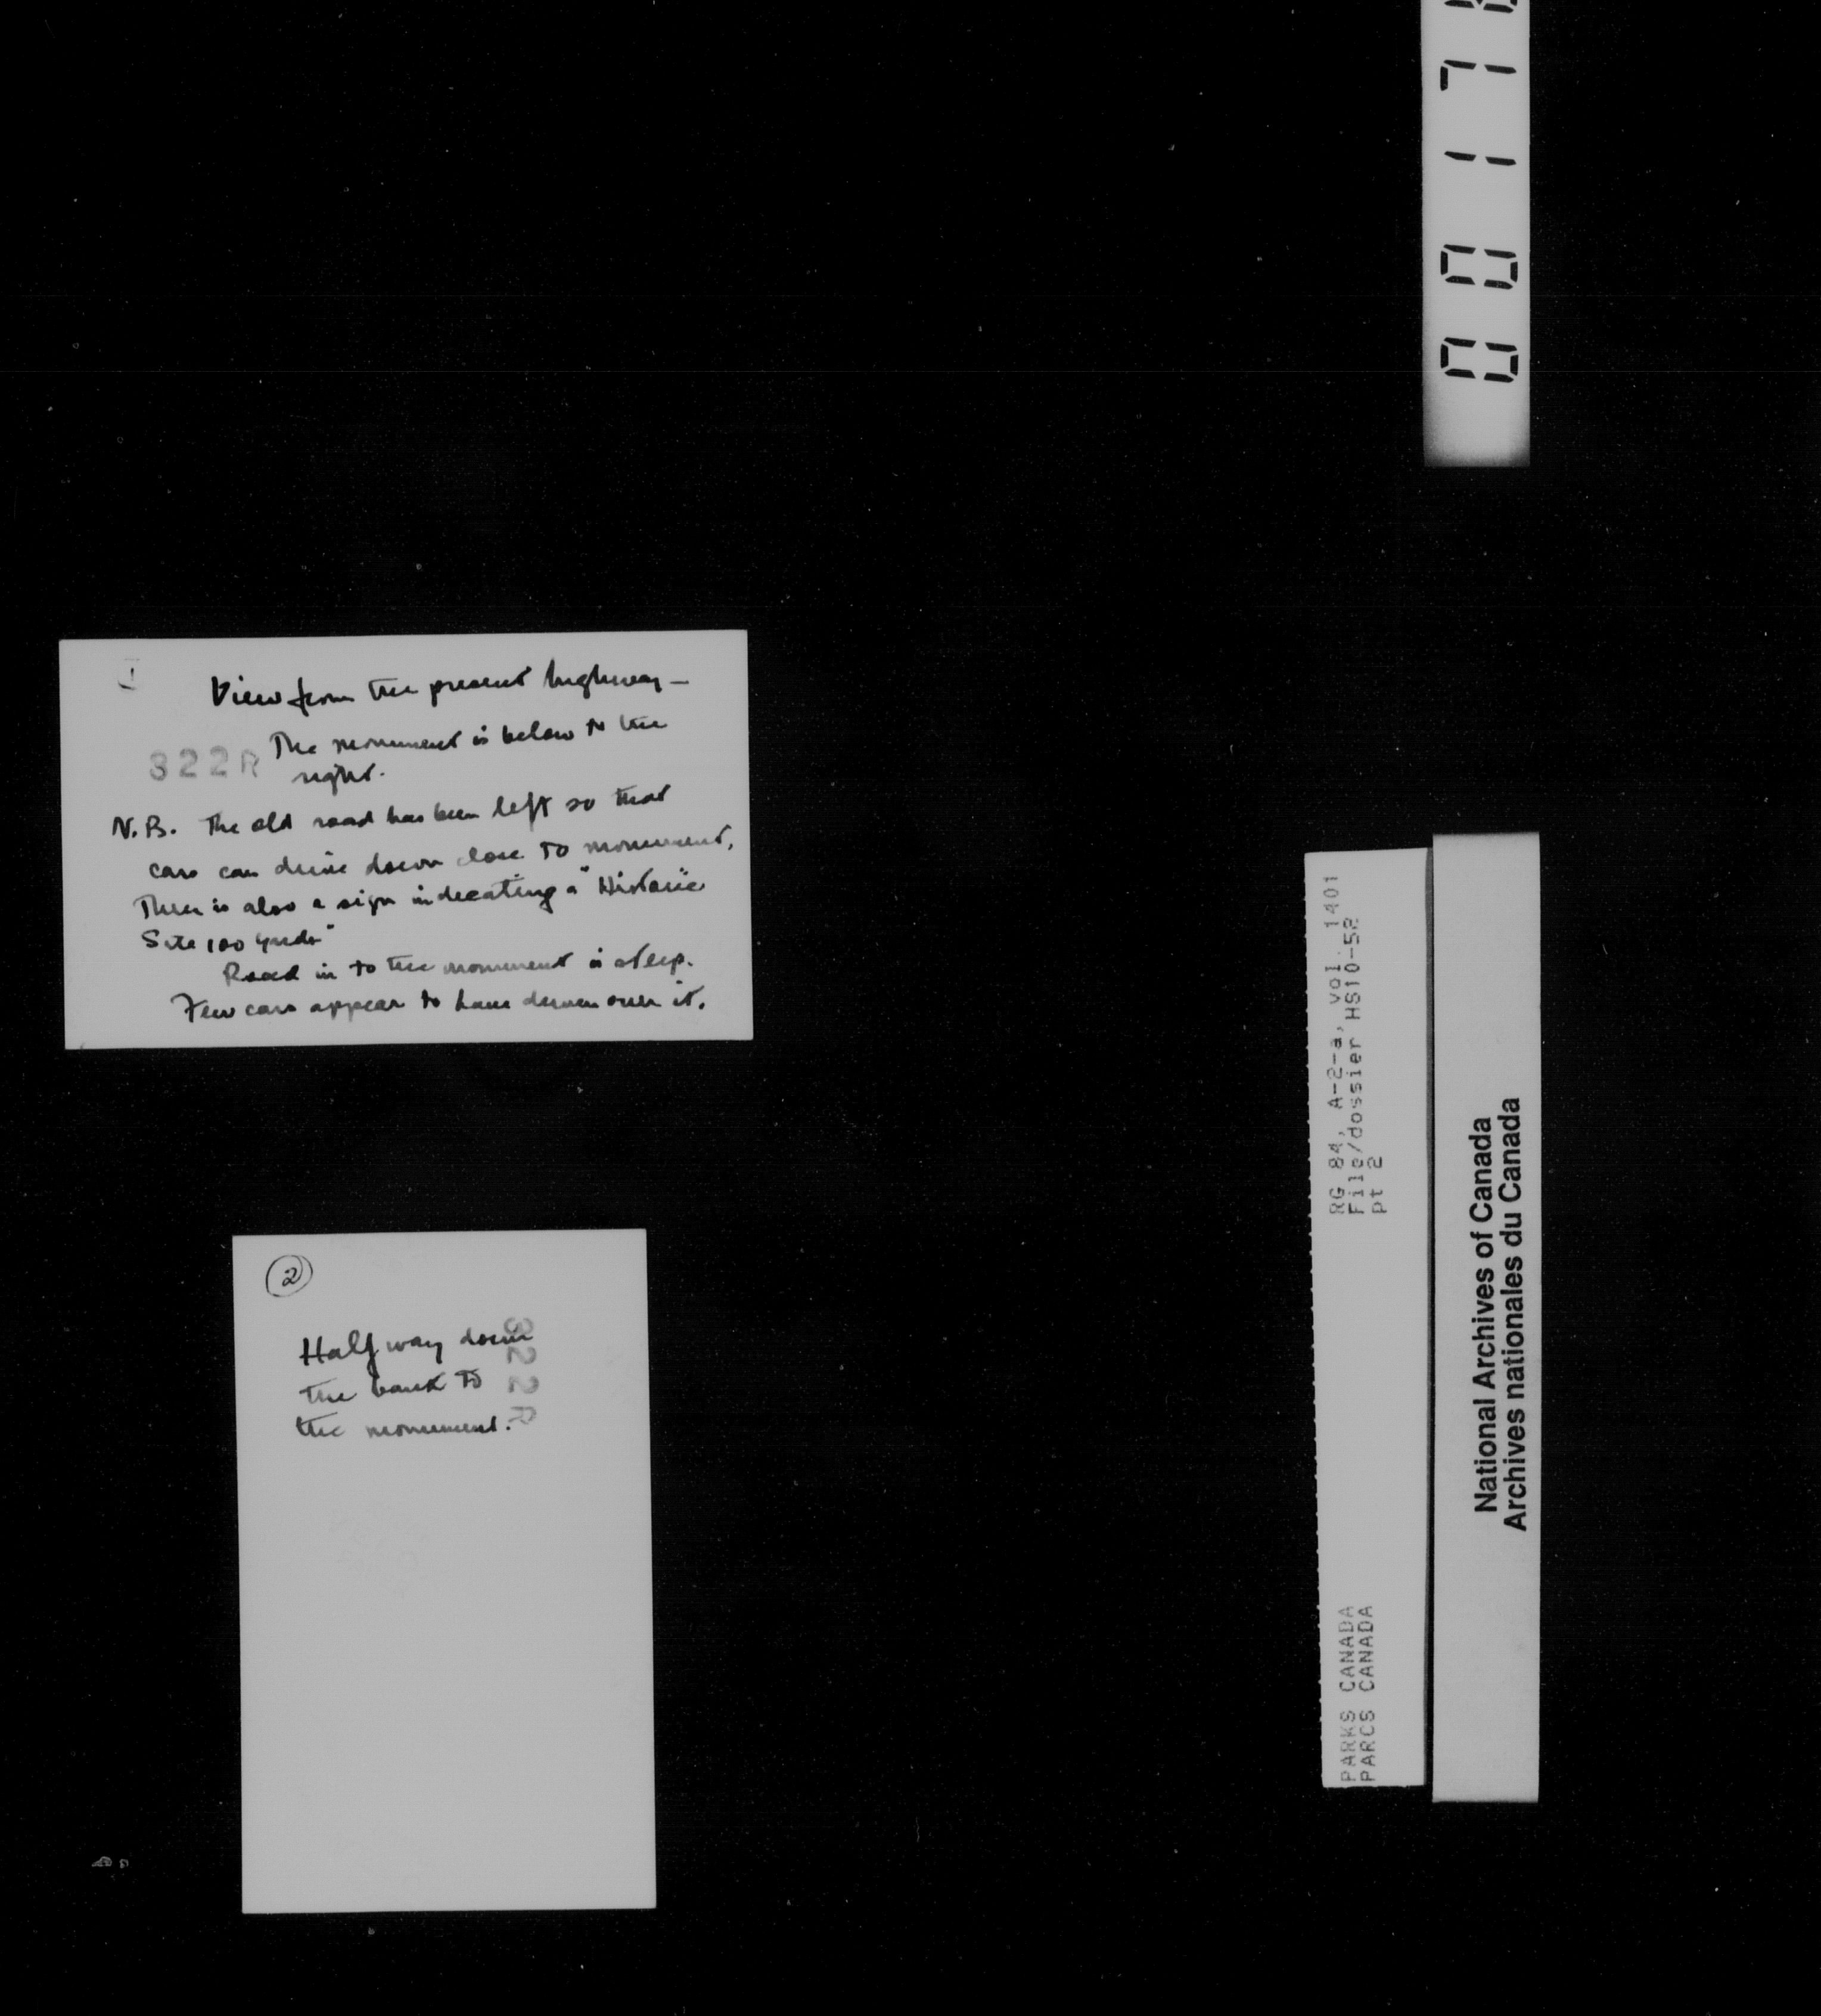 1
View from the present highway —
The monument is below to the
322R
right.
N.B. The old road has been left so that
cars can drive down close to monument.
There is also a sign indecating a "Historic
Site 100 yards"
Road in to the monument is steep.
Few cars appear to have driven over it.
2
Half way down
the bank to
the monument.
322R
0017
RG 84, A-2-a, vol. 1401
File/dossier HS10-52
pt 2
PARKS CANADA
PARCS CANADA
National Archives of Canada
Archives nationales du Canada